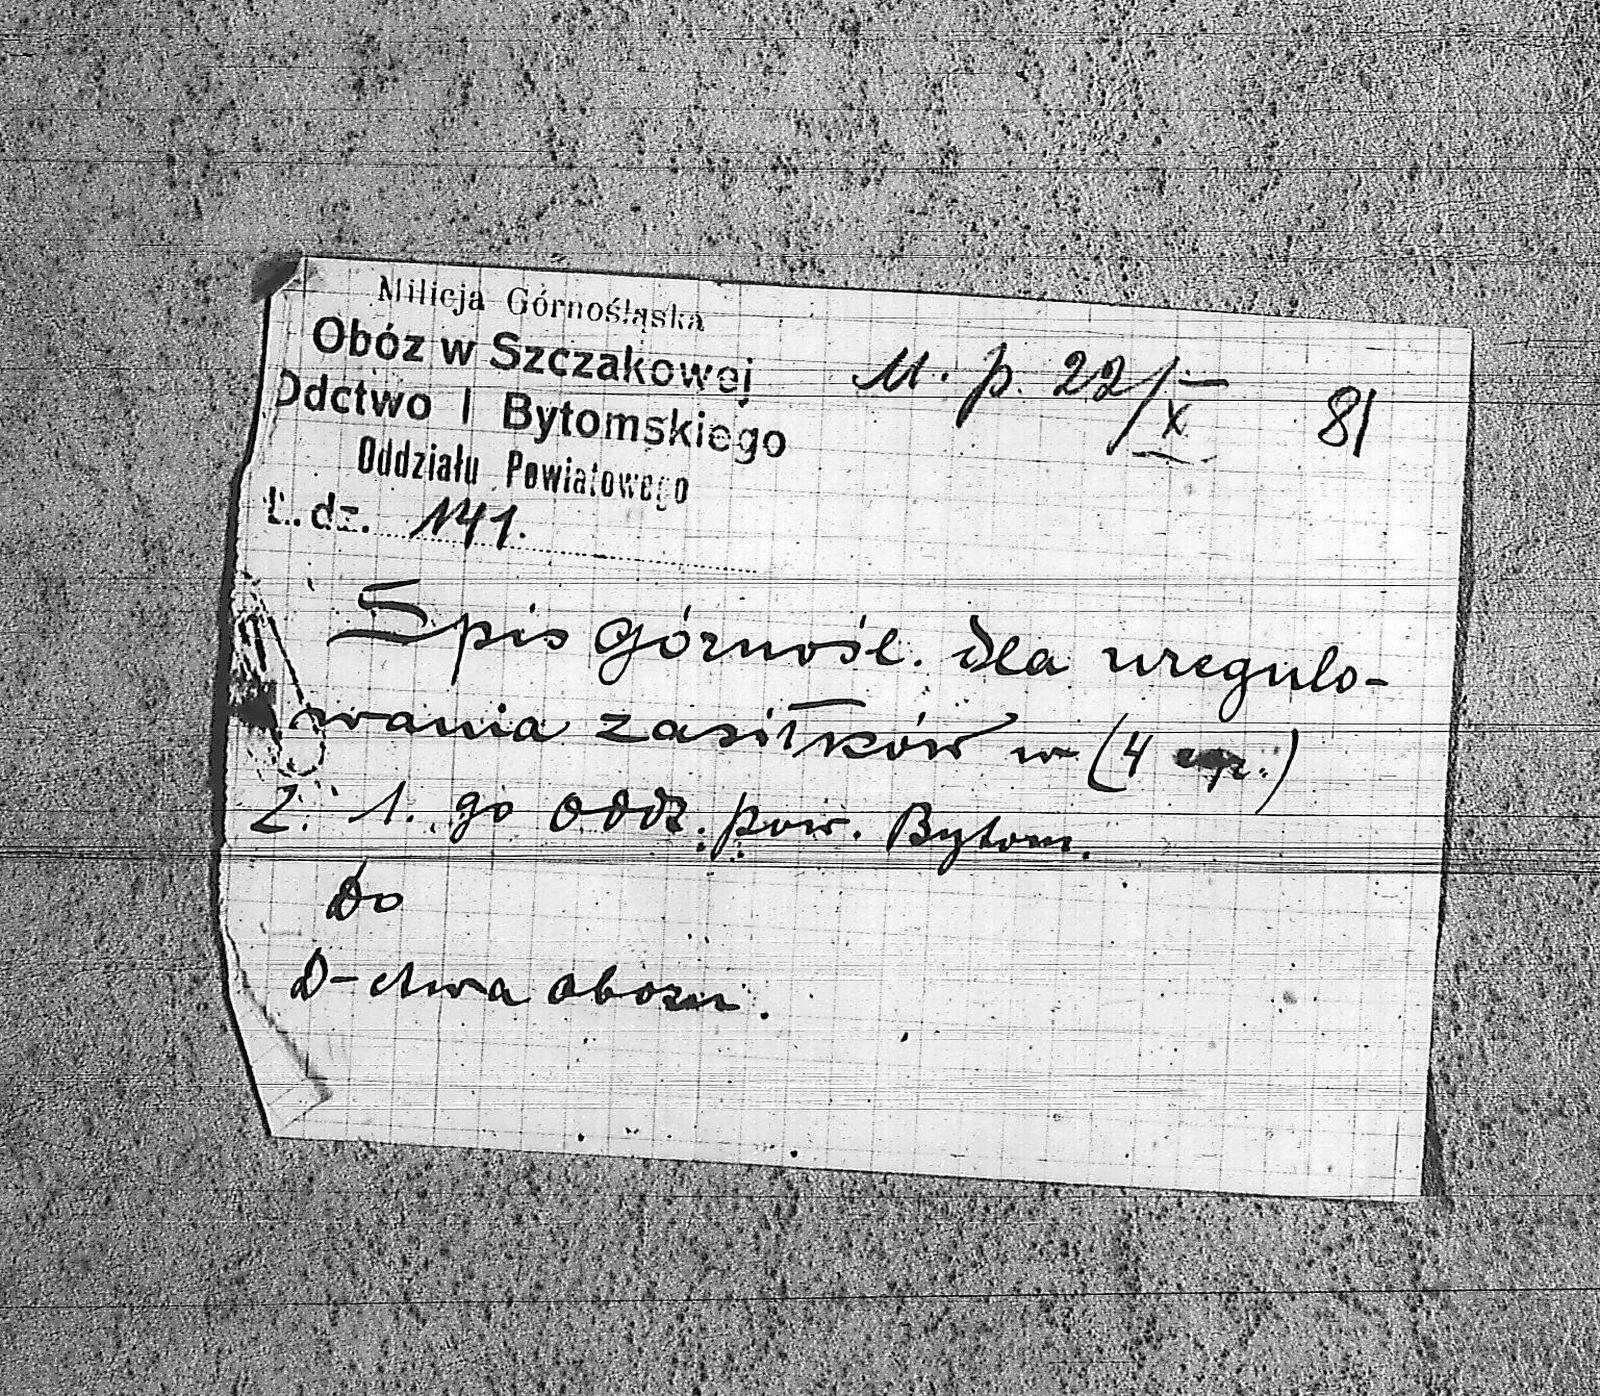 Milicja Górnośląska
Obóz w Szczakowej
Ddctwo I Bytomskiego
Oddziału Powiatowego
L. dz. 141.
M. p. 22/X 81
Spis Górnośl. dla uregulo-
wania zasiłków w (4 )
Z. 1. go oddz. pow. Bytom.
Do
D-ctwa obozu.